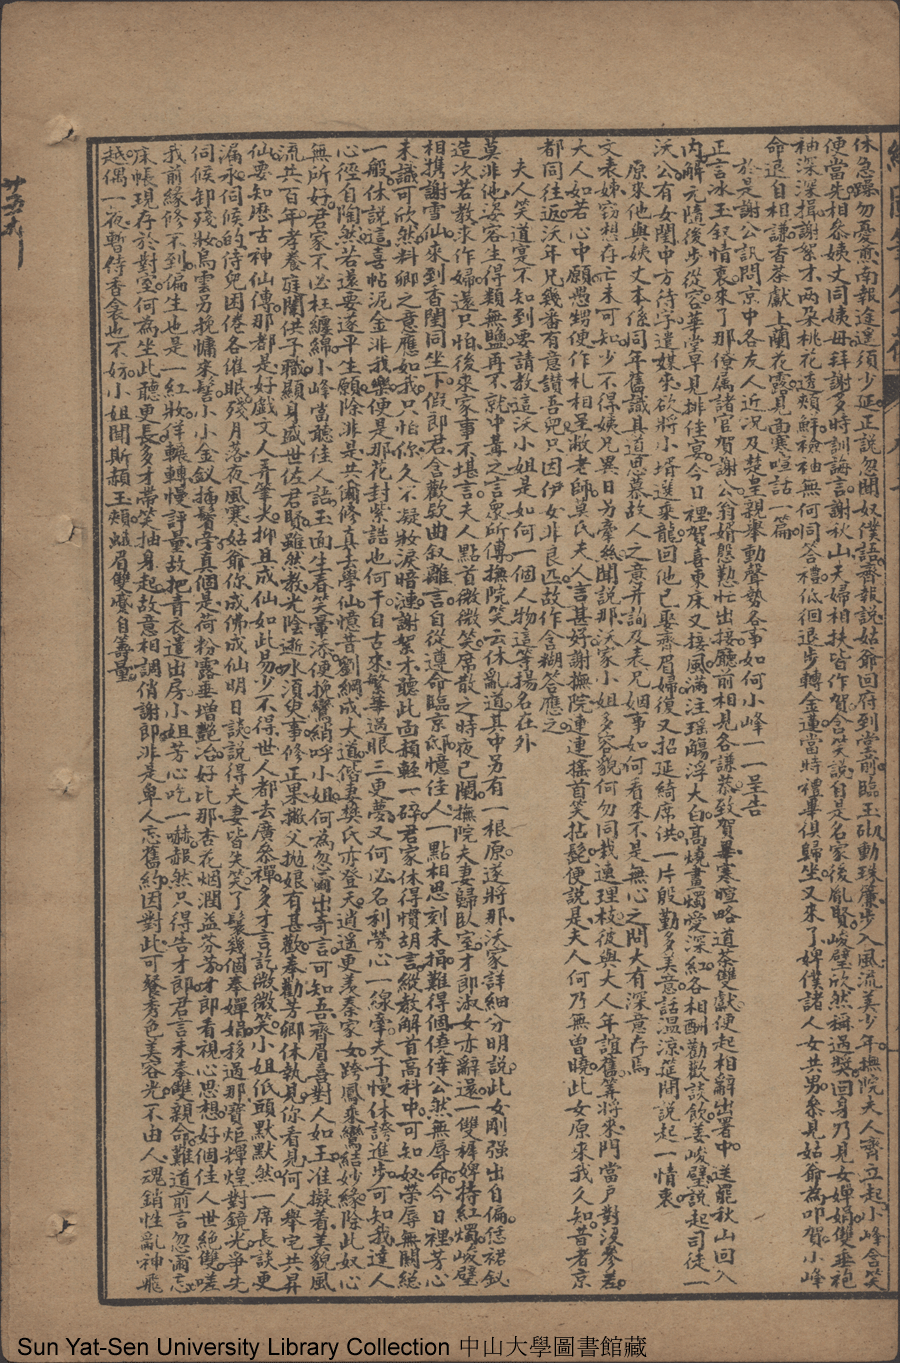 休急躁勿憂煎南報途遠須少延正說忽聞奴僕語齊報說姑爺回府到堂前臨玉砌動珠簾步入風流美少年撫院夫人齊立起小峰含笑
便當先相叅姨丈同姨母拜謝多時訓誨言謝秋山夫婦相扶皆作賀含笑說自是名家後胤賢峻壁欣然稱過奬回身乃見女嬋娟雙垂袍
袖深深揖謝絮才兩朵桃花透頰鮮檢袖無何同答禮低徊退步轉金蓮當時禮畢俱歸坐又來了婢僕諸人女共男叅見姑爺為叩賀小峰
命退自相謙香茶獻上蘭花露見面寒喧話一篇
於是謝公訊問京中各友人近况及楚皇親舉動聲勢各事如何小峰一一呈告
正言冰玉叙情衷來了那僚属諸官賀謝公翁婿慇懃忙出接廳前相見各謙恭致賀畢寒暄略道茶雙獻便起相辭出署中送罷秋山回入
內解元隨後步從容華堂早見排佳宴今日裡賀喜東床又接風滿注瑶觴浮大白高燒畫燭愛深紅各相酬勸歡談飲姜峻壁說起司徒一
沃公有女閨中方待字遣媒來欲將小壻選乘龍回他已娶齊眉婦復又招延綺席供一片殷勤多美意話溫涼筵間說起一情衷
原來他與姨丈本係同年舊識具道思慕故人之意并詢及表兄姻事如何看來不是無心之問大有深意存焉
文表姊窃想存亡未可知少不得姨兄異日另牽絲聞說那沃家小姐多容貌何勿同栽連理枝彼與大人年誼舊筭將來門當户對沒參差
大人如若心中願愚甥便作札相呈敝老師莫氏夫人言甚好謝撫院連連摇首笑拈髭便說是夫人何乃無曾曉此女原來我久知昔者京
都同往返沃年兄幾番有意讃吾兒只因伊女非良匹故作含糊答應之
夫人笑道寔不知到要請教這沃小姐是如何一個人物這等揚名在外
莫非他姿容生得類無鹽再不就中冓之言衆所傳撫院笑云休亂道其中另有一根原遂將那沃家詳細分明說此女剛强出自偏恁裙釵
造次若教求作婦還只怕後來家事不堪言夫人點首微微笑席散之時夜已闌撫院夫妻歸臥室才郎淑女亦辭還一雙裨婢持紅燭峻壁
相携謝雪仙來到香閨同坐下假郎君含歡欵曲叙離言自從遵命臨京邸憶佳人一點相思刻未捐難得個僥倖公然無辱命今日裡芳心
未識可欣然料卿之意應如我只怕你久不凝妝淚暗漣謝絮才聽此面頳輕一碎君家休得慣胡言縱教解首高科中可知奴榮辱無關總
一般休說這喜帖泥金非我樂便是那花封紫誥也何干自古來繁華過眼三更夢又何必名利勞心一線牽夫子慢休誇進步可知我達人
心徑自陶然若還要遂平生願除非是共爾修真去學仙憶昔劉綱成大道偕妻樊氏亦登天逍遥更羡秦家女跨鳳乘鸞結妙緣除此奴心
無所好君家不必枉纏綿小峰當聽佳人話玉面生春笑暈添便挽鸞綃呼小姐何為忽爾出奇言可知吾齊眉喜對人如玉准擬着美貌風
流共百年孝養庭闈供子職顯身盛世佐君賑雖然教光陰逝水須臾事修正果撇父抛娘有甚歡奉勸芳卿休執見你看見何人舉宅共昇
仙要知歷古神仙傳那都是好戯文人弄筆尖抑且成仙如此易少不得世人都去廣叅禪多才言訖微微笑小姐低頭默默然一席長談更
漏永伺候的侍兒困倦各催眠殘月落夜風寒姑爺你成佛成仙明日談說得夫妻皆失笑了鬟幾個奉嬋娟移過那寶炬輝煌對鏡光爭先
伺候卸殘妝烏雲另挽慵來髻小小金釵插鬢旁真個是荷粉露垂增艷冶好比那杏花烟潤益芬芳才郎看視心思想好個佳人世絕雙嗟
我前緣修不到偏生也是一紅妝徉輾轉慢評量故把青衣遣出房小姐芳心吃一嚇赧然只得告才郎君言未奉雙親命難道前言忽爾忘
床帳現存於對室何為坐此聽更長多才帶笑抽身起故意相調俏謝郎非是卑人忘舊約因對此可餐秀色美容光不由人魂銷性亂神飛
越偶一夜暫侍香衾也不妨小姐聞斯頳玉頰蛾眉雙蹙自籌量